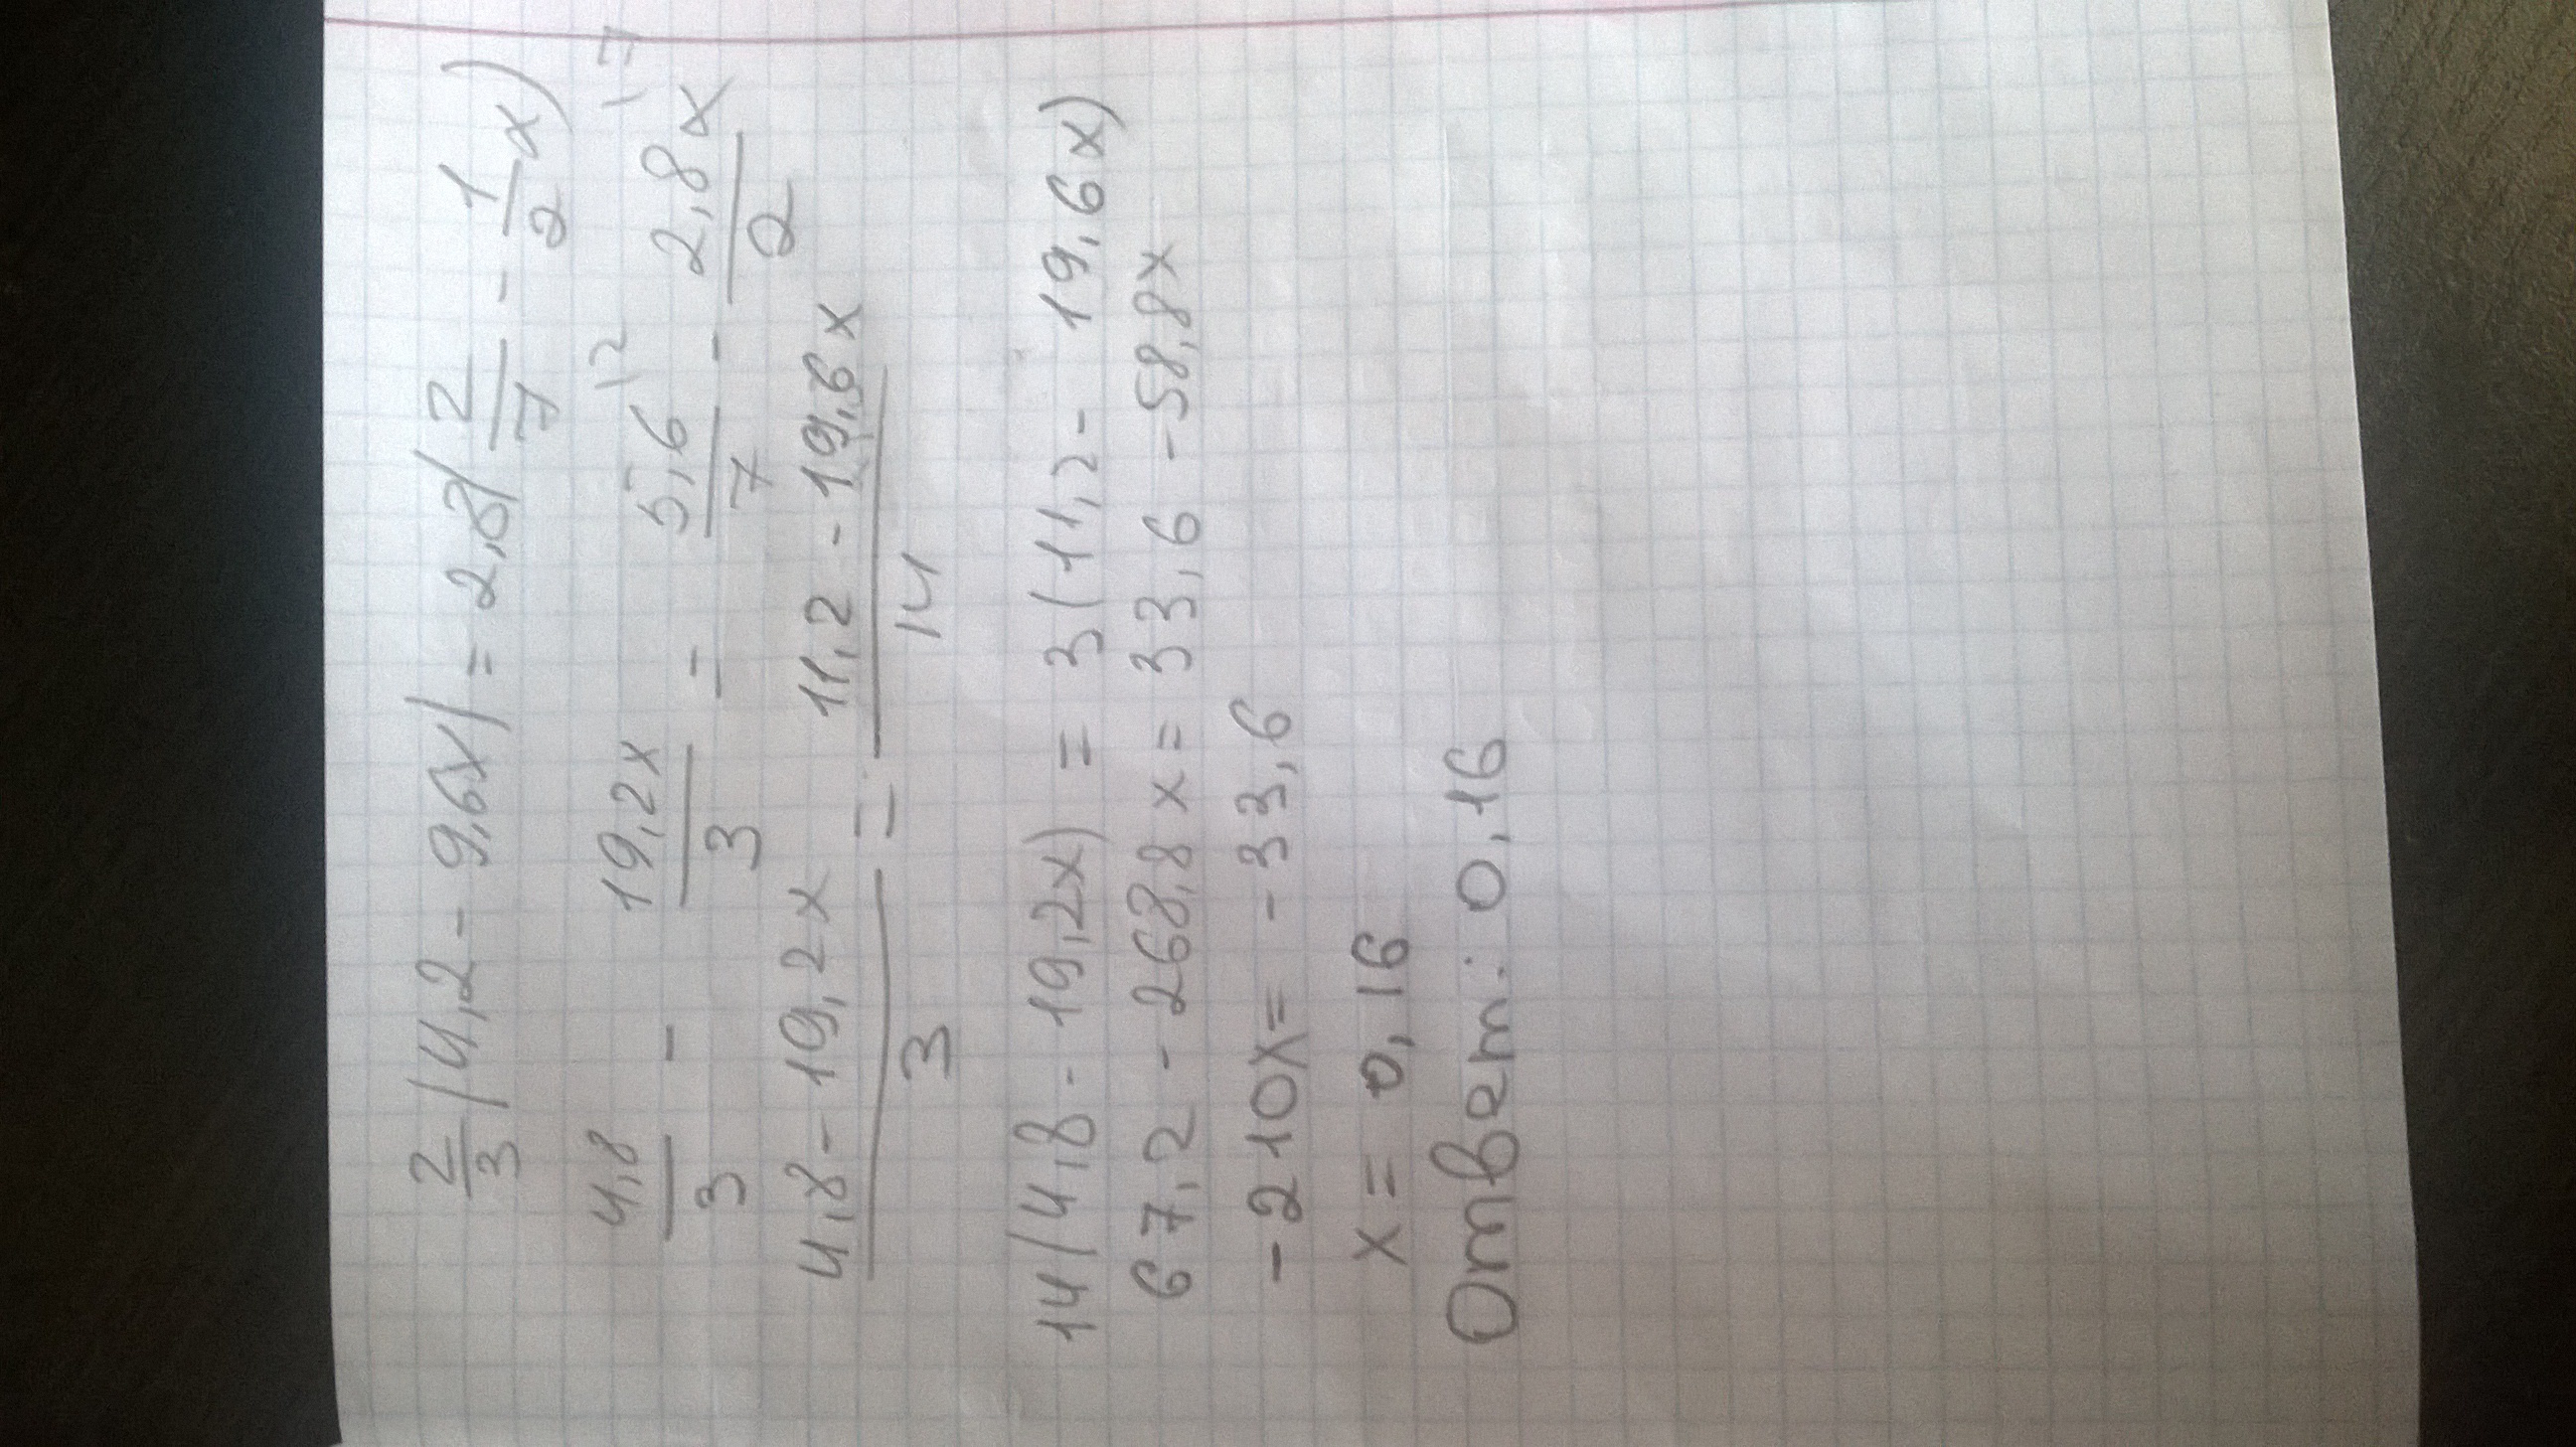 2/3 (4,2 - 9,6x) = 2,8(2/7 - 1/2 x)
4,8/3 - 19,2x/3 = 5,6/7 \2 - 2,8x/2 \7
4,8 - 19,2x/3 = 11,2 - 19,6x/14
14(4,8 - 19,2x) = 3(11,2 - 19,6x)
67,2 - 268,8x = 33,6 - 58,8x
-210x = -33,6
x = 0,16
Ответ: 0,16